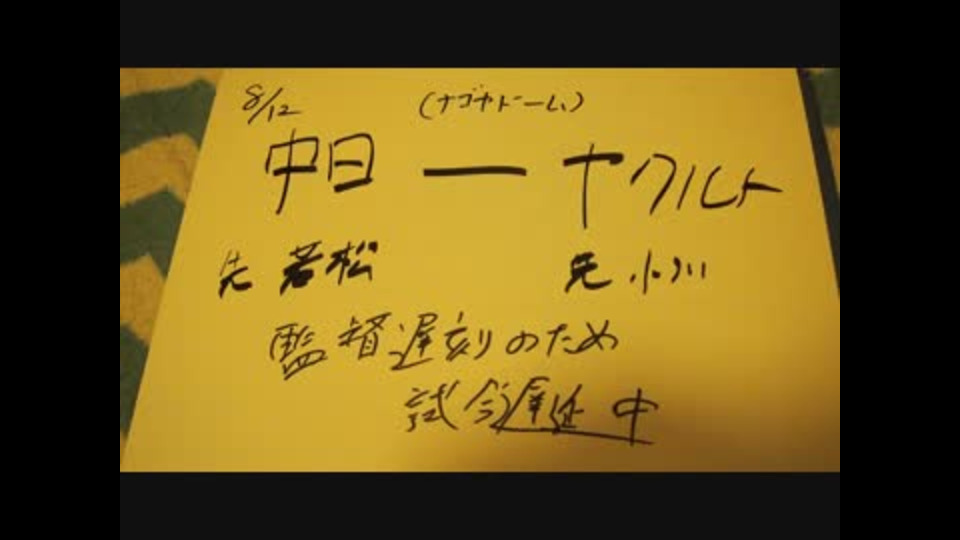 8/12 (ナゴヤドーム)
中日 ー ヤクルト
先 若松 先 小川
監督遅刻のため
試合遅延中